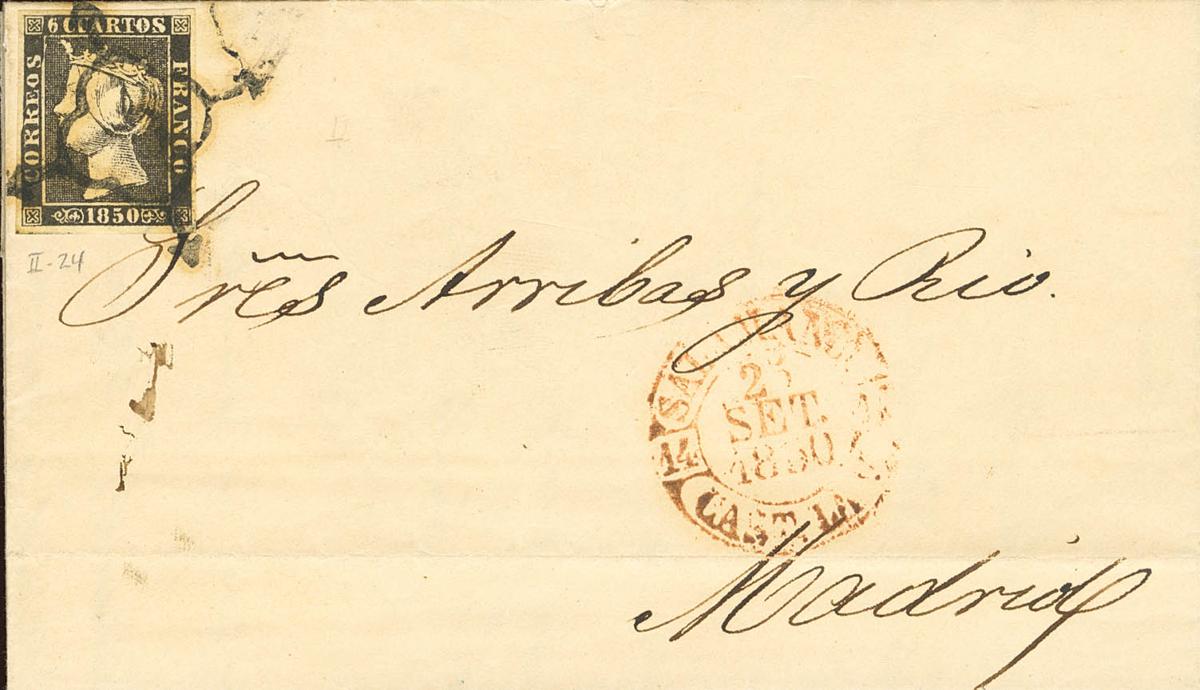 6 CUARTOS
CORREOS
FRANCO
1850
II-24
II
Sres Arribas y Rio.
SALAMANCA
25
SET.
1850
14
CAST. LA
Madrid